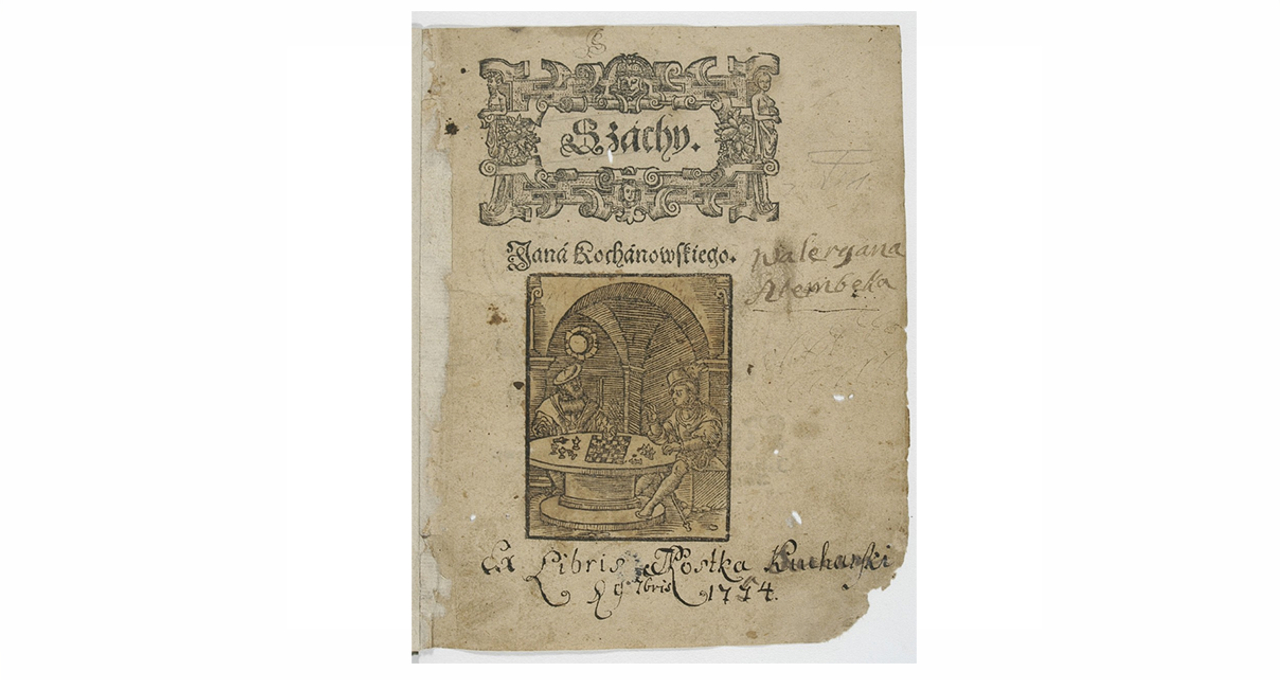 Száchy.
Janá Kochánowskiego.
Waleryana
Alembeka
Ex Libris Kostka Kucharski
7bris 1774.